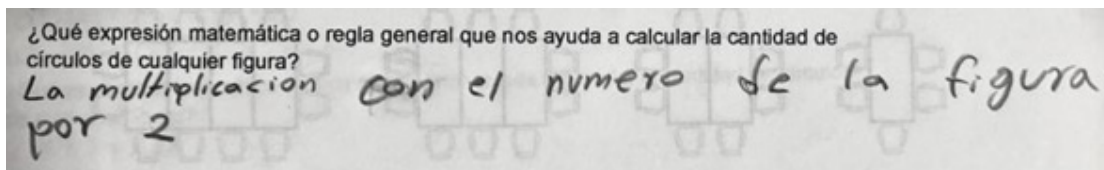 ¿Qué expresión matemática o regla general que nos ayuda a calcular la cantidad de
círculos de cualquier figura?
La multiplicacion con el numero de la figura
por 2